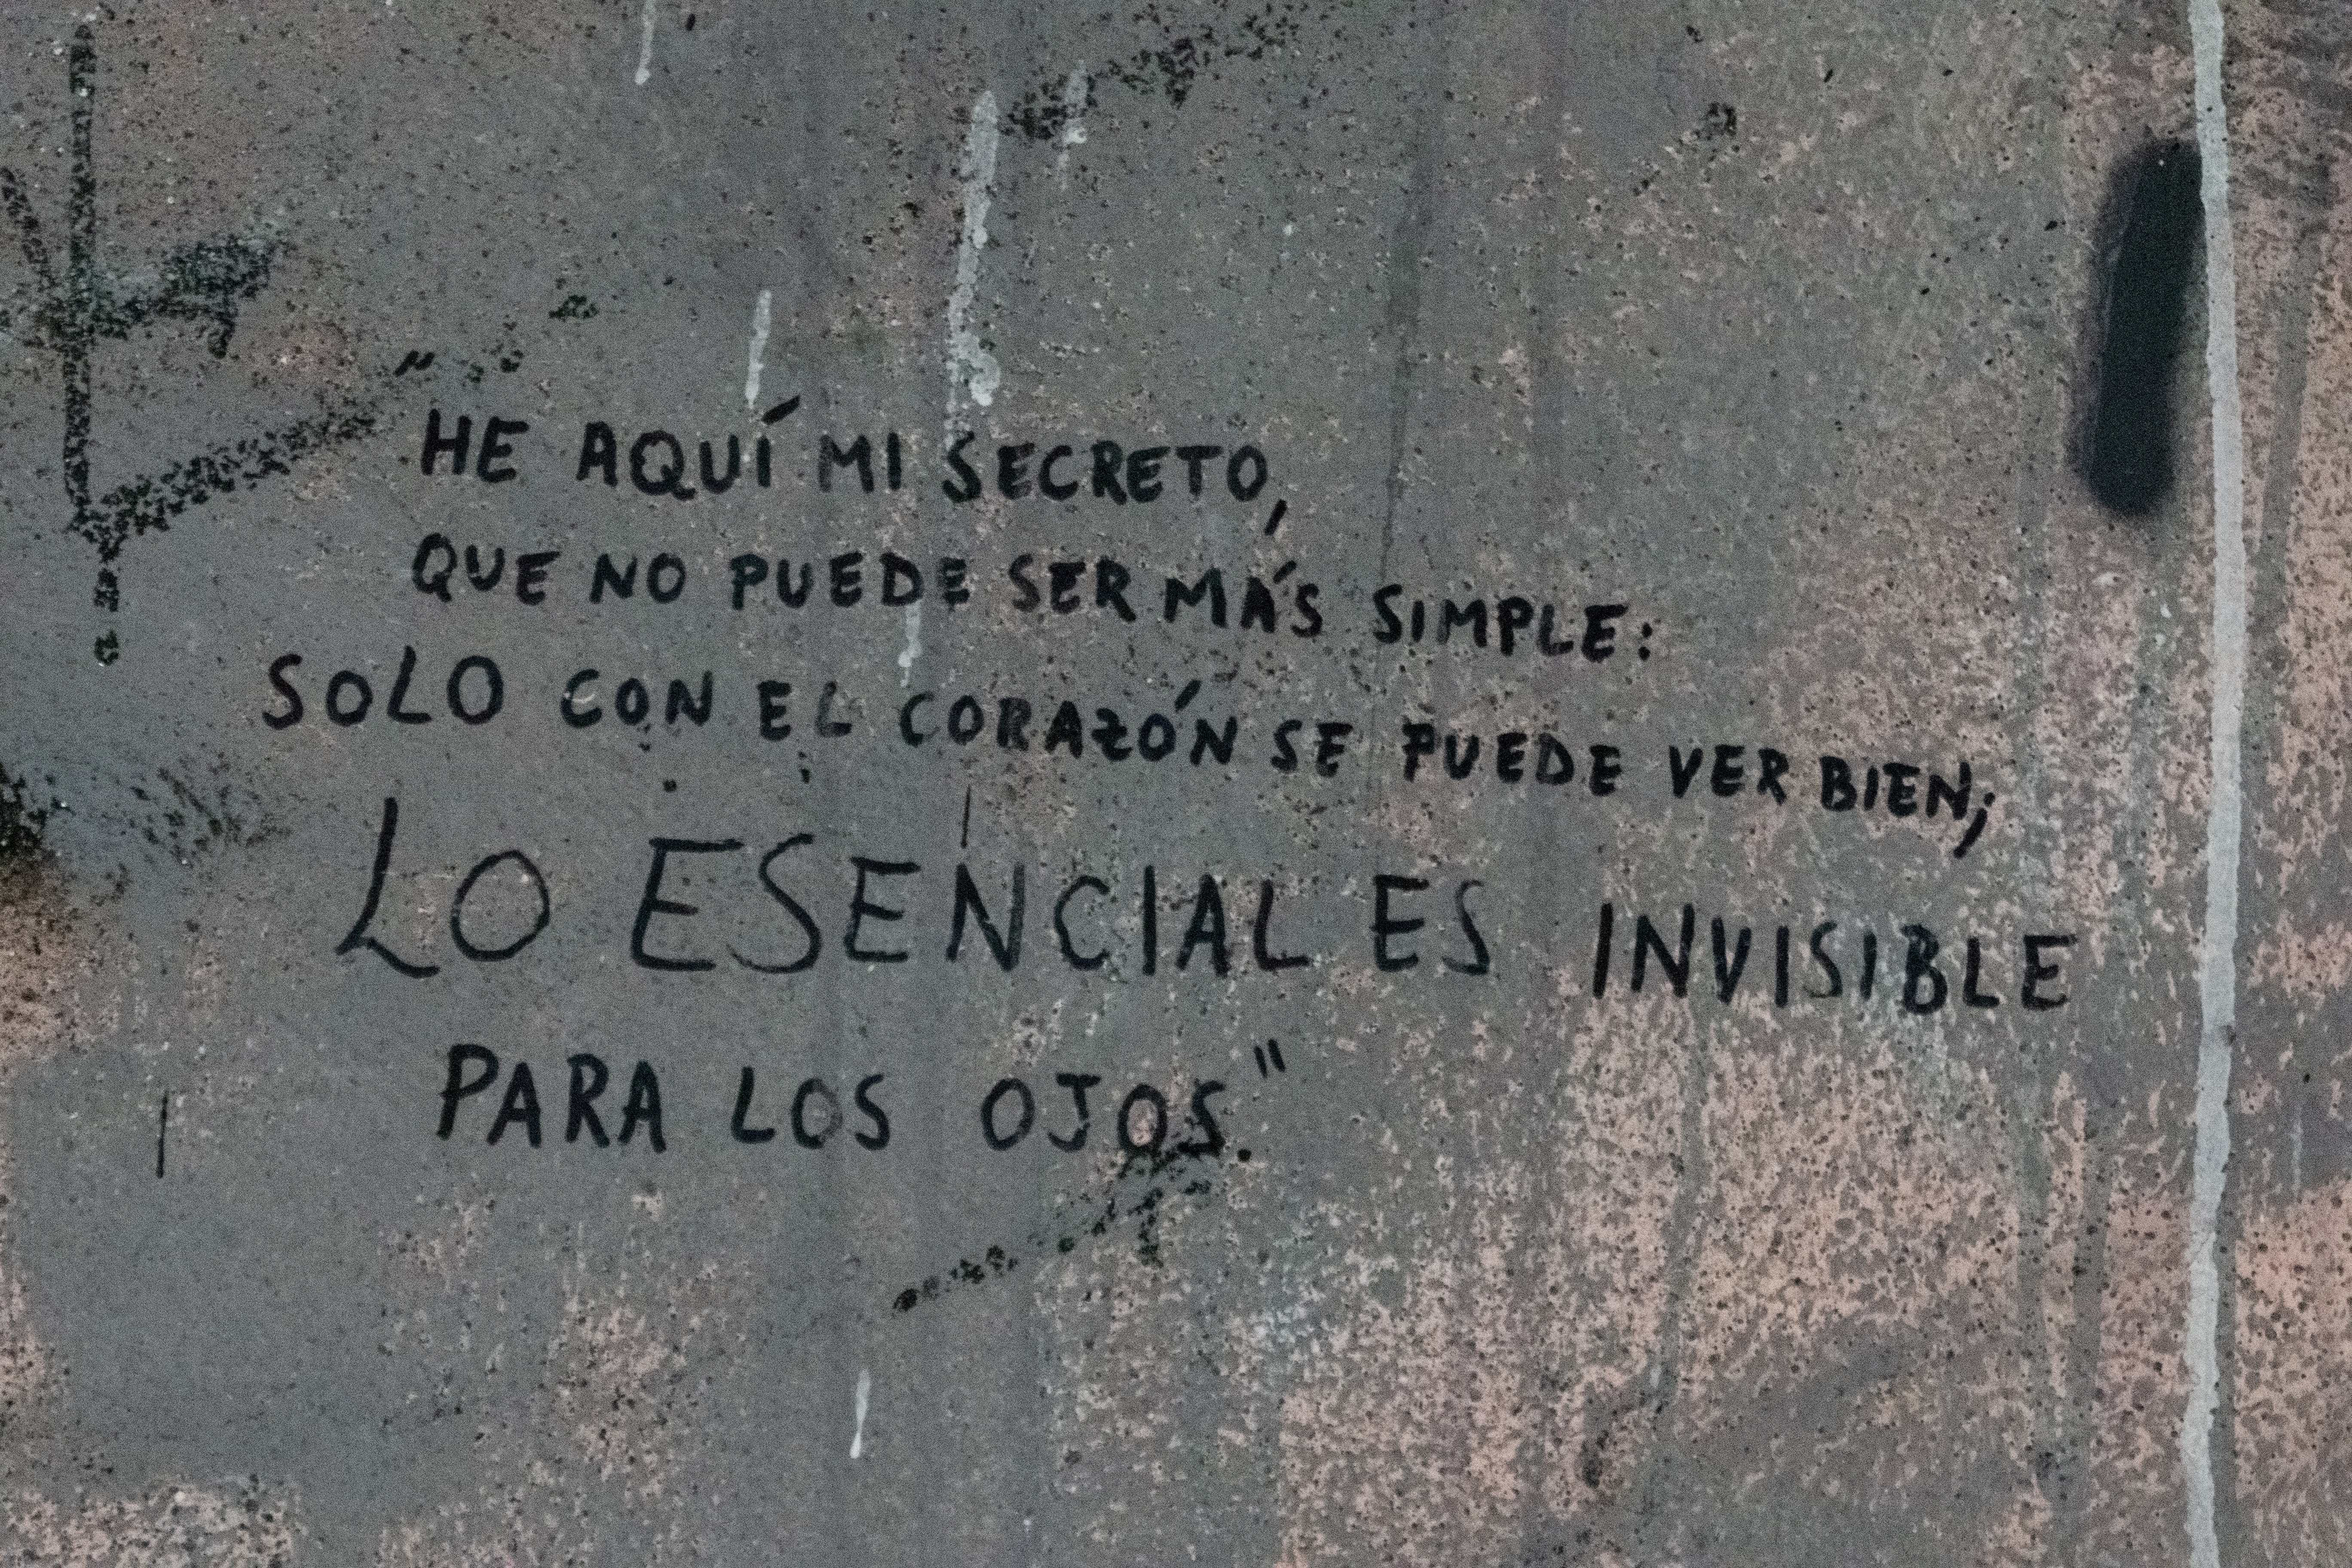 "HE AQUÍ MI SECRETO,
QUE NO PUEDE SER MÁS SIMPLE:
SOLO CON EL CORAZÓN SE PUEDE VER BIEN;
LO ESENCIAL ES INVISIBLE
PARA LOS OJOS."